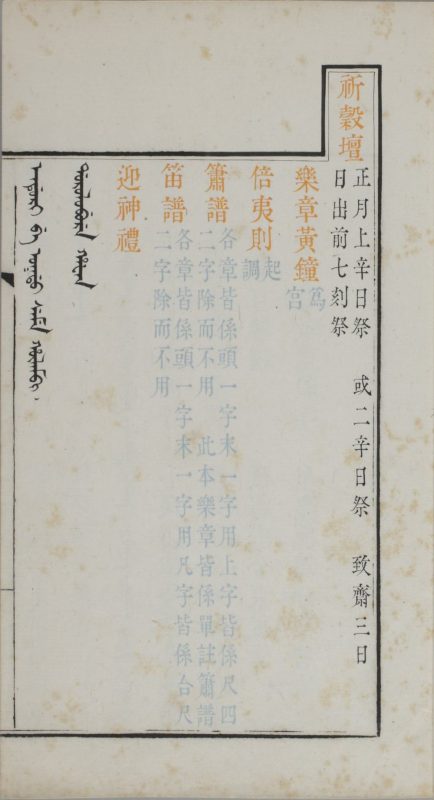 祈穀壇
正月上辛日祭　或二辛日祭　致齋三日
日出前七刻祭
樂章黃鐘為宮
倍夷則起調
簫譜各章皆係頭一字末一字用上字皆係尺四
二字除而不用　此本樂章皆係單註簫譜
笛譜各章皆係頭一字末一字用凡字皆係合尺
二字除而不用
迎神禮